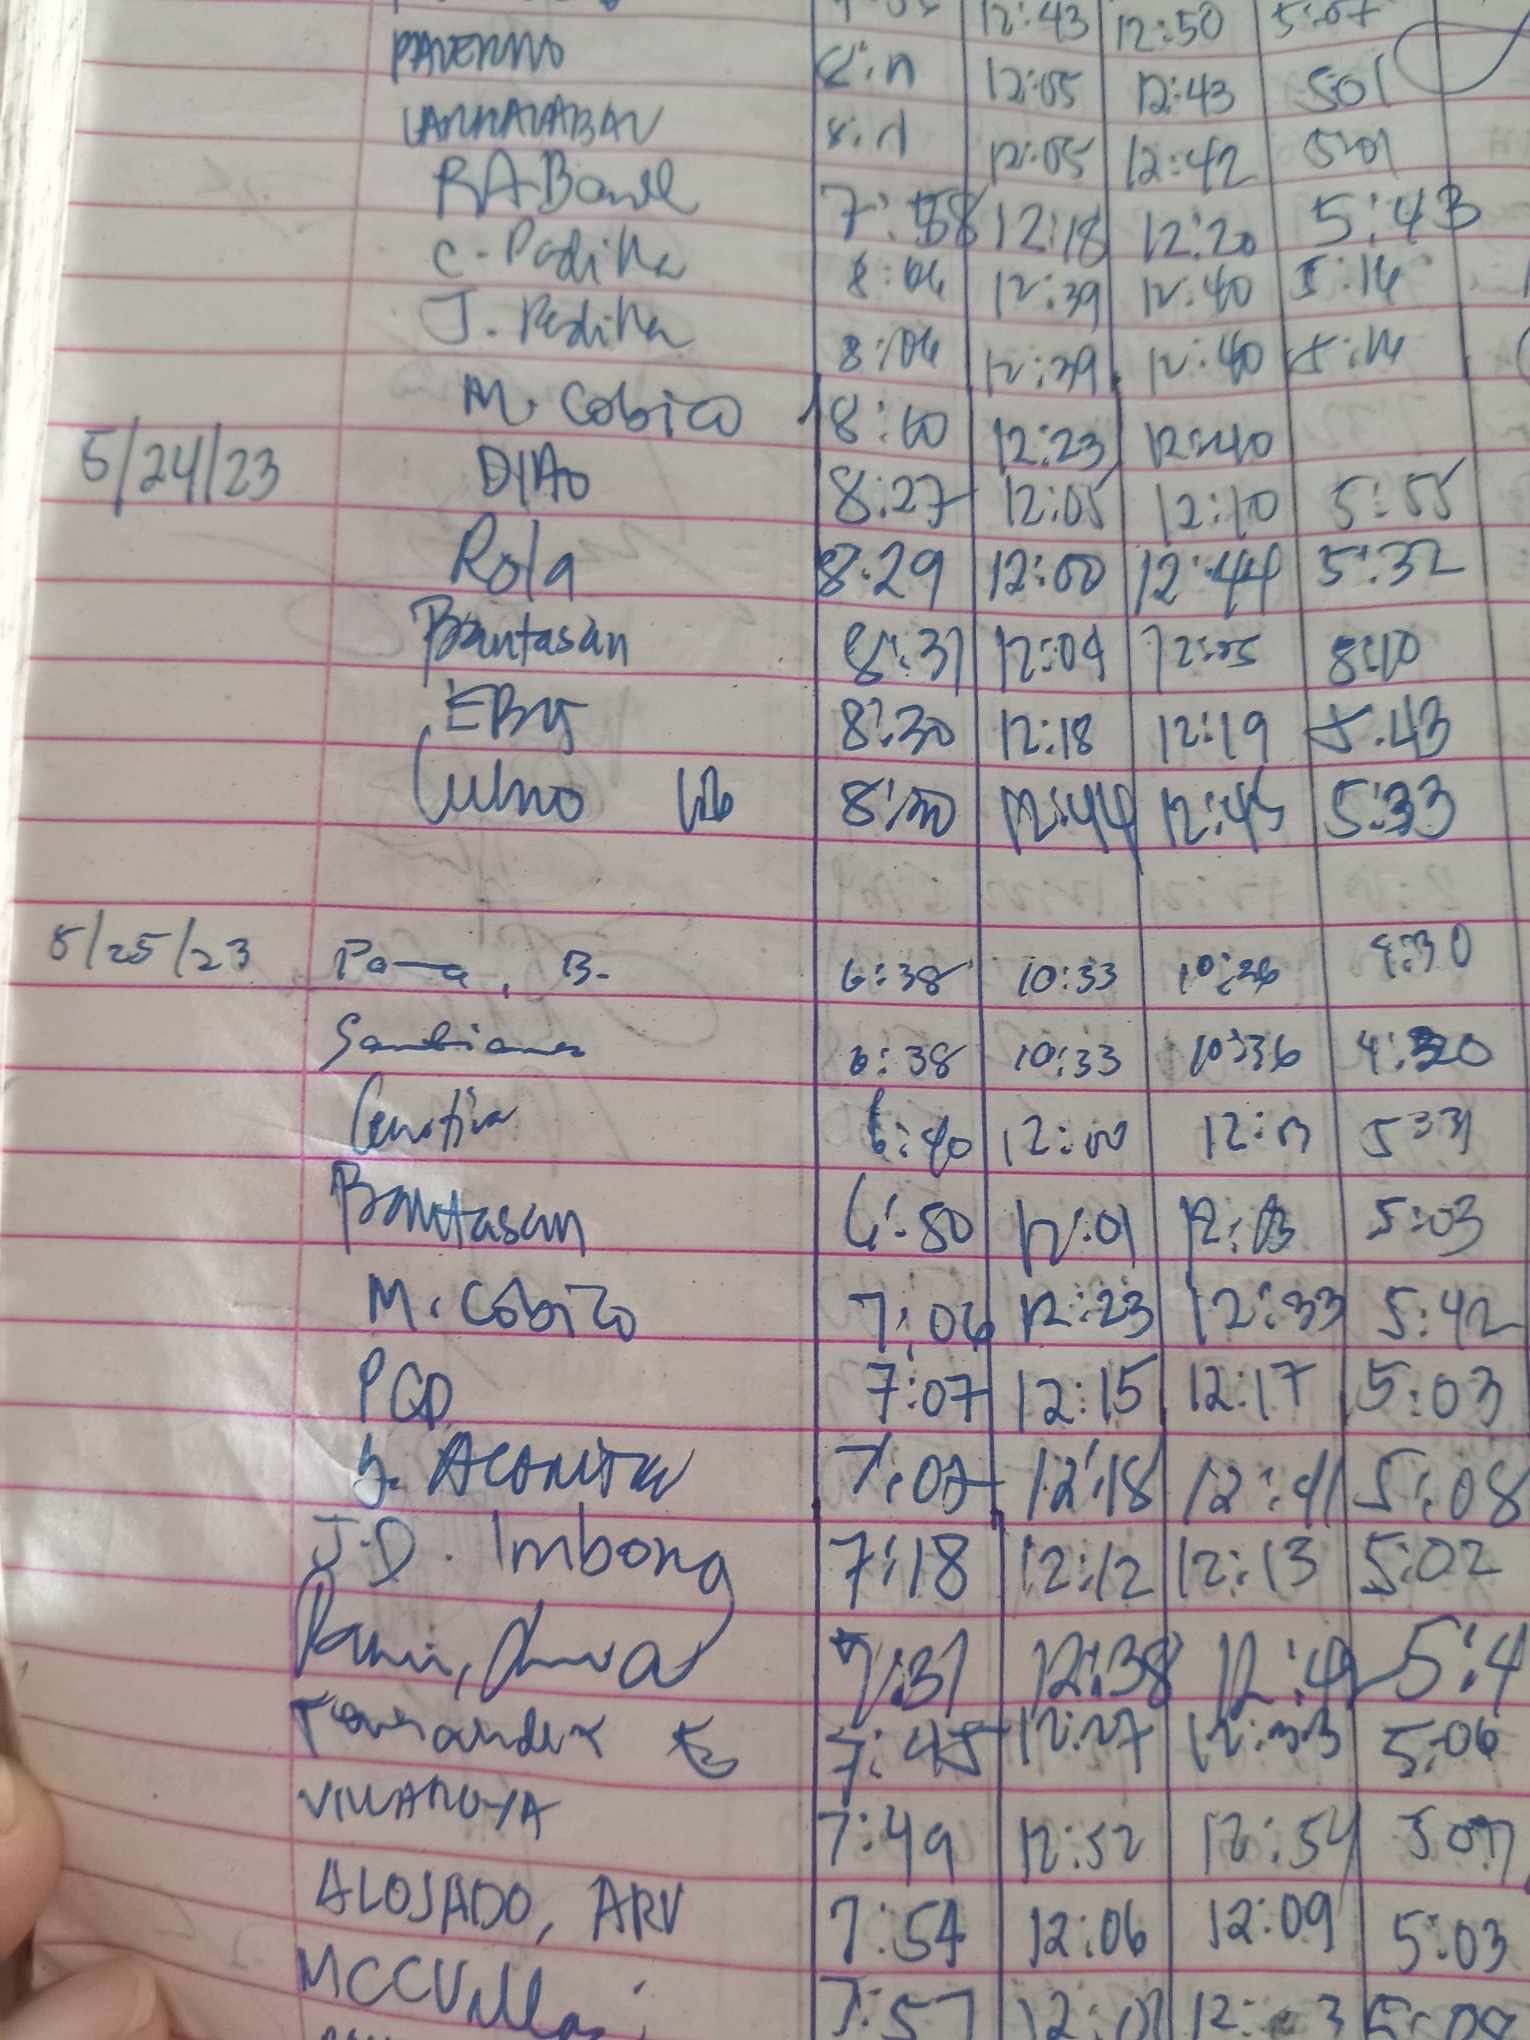 12:43 12:50 5:07
PAVERMO 12:05 12:43 501
12:05 12:42 501
RABanel 7:58 12:18 12:20 5:43
C. Padilla 8:06 12:39 12:40 5:14
J. Padilla 8:06 12:39 12:40 5:14
M. Cobico 8:10 12:23 12:40
5/24/23 DIAO 8:27 12:05 12:10 5:55
Rola 8:29 12:00 12:44 5:32
Bantasan 8:31 12:04 12:05 8:10
8:30 12:18 12:19 5.43
8:30 12:44 12:45 5:33
5/25/23 B. 6:38 10:33 10:36 4:30
6:38 10:33 10:36
6:40 12:00 5 33
Bantasan 6:50 12:01 12:03 5:03
M. Cobico 7:06 12:23 12:33 5:42
PCD 7:07 12:15 12:17 5:03
7:07 12:18 12:41 5:08
J.D. Imbong 7:18 12:12 12:13 5:02
7:31 12:38 5:4
7:45 12:27 12:33 5:06
VILLANUEVA 7:49 12:52 12:54
ALOJADO, ARV 7:54 12:06 12:09 5:03
MCCVilla 7:57